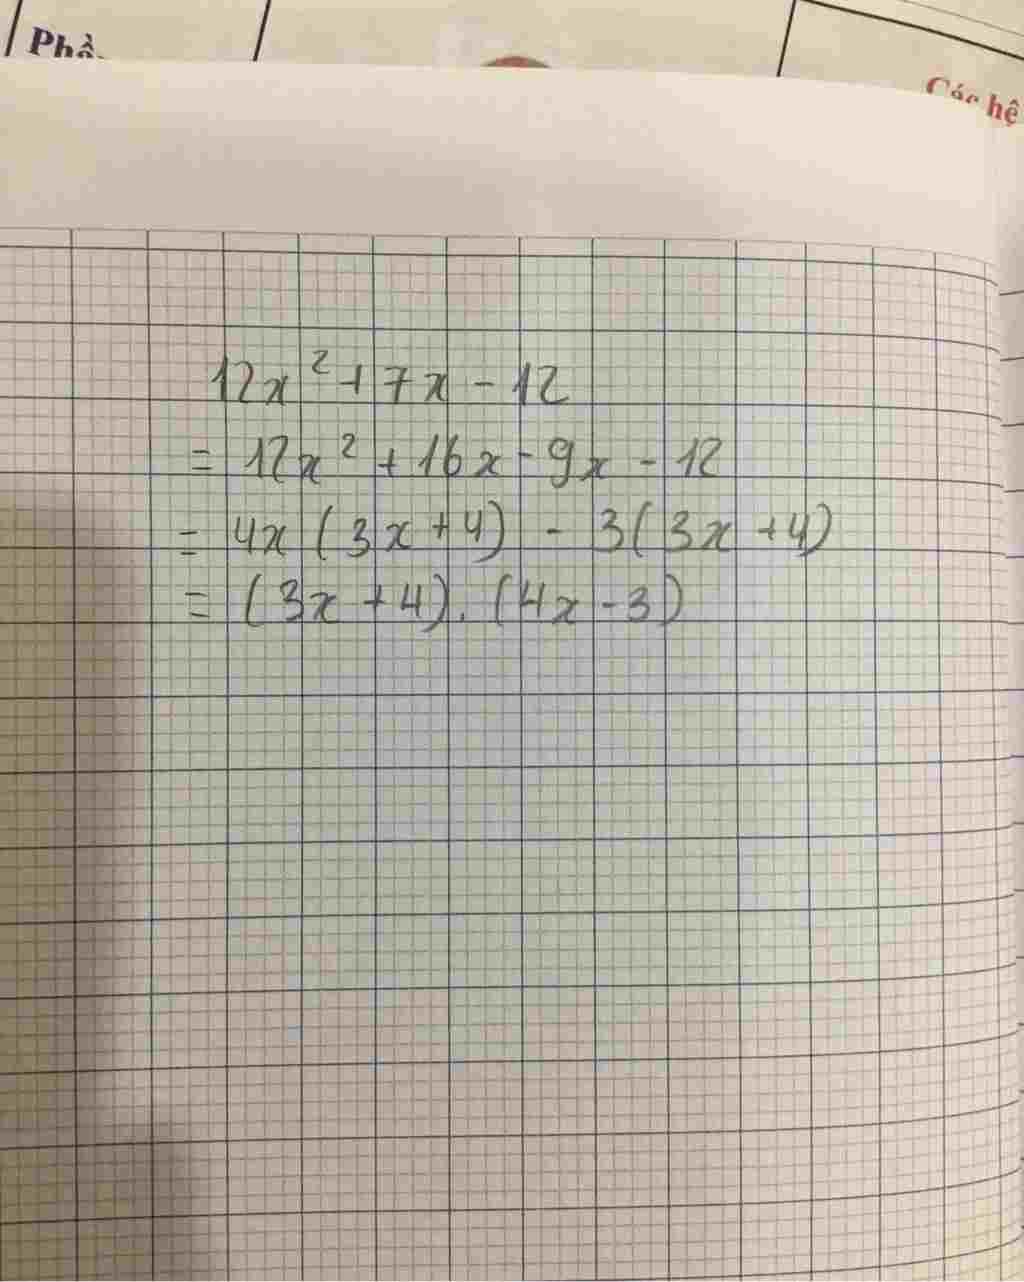 Các hệ
12x² + 7x - 12
= 12x² + 16x - 9x - 12
= 4x (3x + 4) - 3(3x + 4)
= (3x + 4) . (4x - 3)